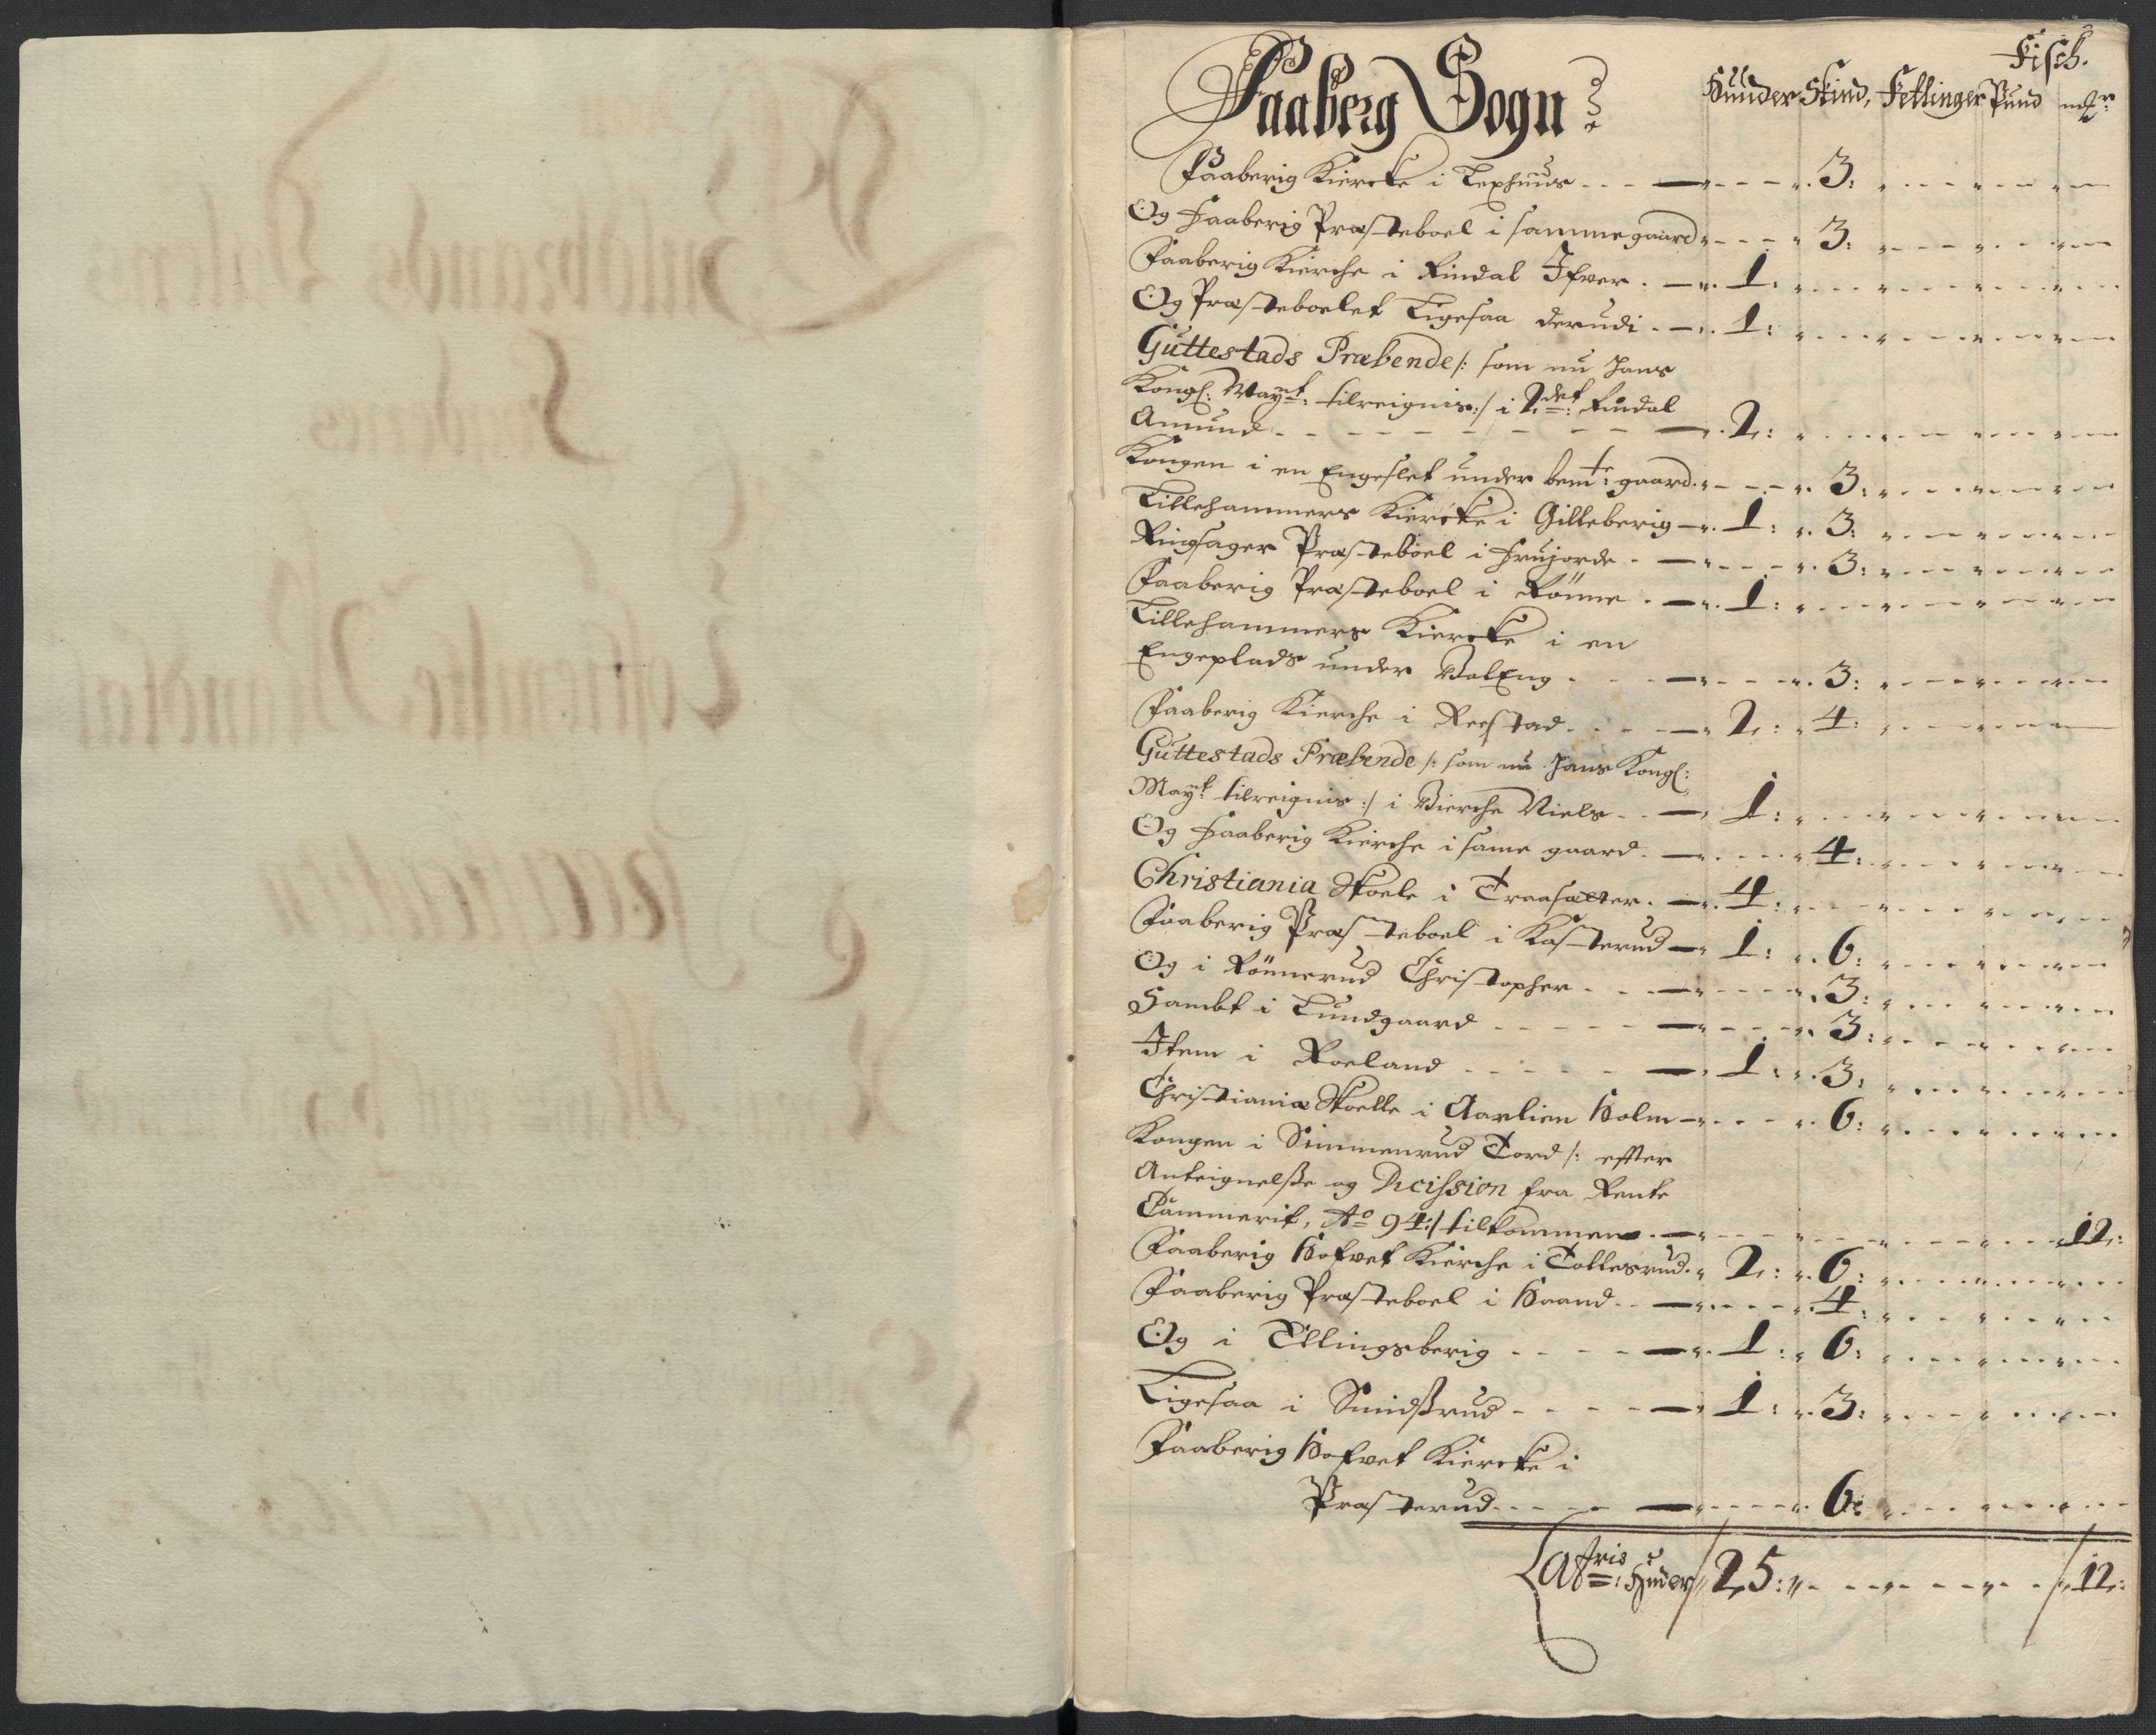 Fisch.
Faaberg Sogn
Huuder Skind, Fetlinger Pund mkr
Faaberig Kiercke i Lexhuus - - - 3:
Og Faaberig Præsteboel i samme gaard - - 3:
Faaberig Kierche i Rindal Ifver . 1:
Og Præsteboelet Ligesaa derudi . 1:
Guttestads Præbende /: som nu Hans
Kongl: Mayt: tilreignis :/ i Rindal
Amund - - - 2:
Kongen i en Engeslet under bemte: gaard - - 3:
Lillehammers Kiercke i Gilleberig 1: 3:
Ringsager Præsteboel i Frujorde - 3:
Faaberig Præsteboel i Rönne . 1:
Lillehammers Kiercke i en
Engeplads under VolEng - - 3:
Faaberig Kierche i Reestad - - 2: 4:
Guttestads Præbende /: som nu Hans Kongl:
Mayt: tilreignis :/ i Vierche Niels - 1:
Og Faaberig Kierche i same gaard - 4:
Christiania Skoele i Traasætter . 4:
Faaberig Præsteboel i Kasterud 1: 6:
Og i Rönnerud Christopher - - 3:
Sambt i Lundgaard - - - 3:
Item i Roeland - - - 1: 3:
Christianiæ Skoelle i Aarlien Holm - - 6:
Kongen i Simmenrud Tord /: efter
Anteignelsse og Decission fra Rente
Cammerit, Ao 94 :/ tilkommen - - 12:
Faaberig Hofvet Kierche i Tollesrud - 2: 6:
Faaberig Præsteboel i Haand - - 4:
Og i Ellingsberig - - - 1: 6:
Ligesaa i Smidssrud - - - 1: 3:
Faaberig Hofvet Kiercke i
Præsterud - - - 6:
Latris: Huder 25: - - - 12: